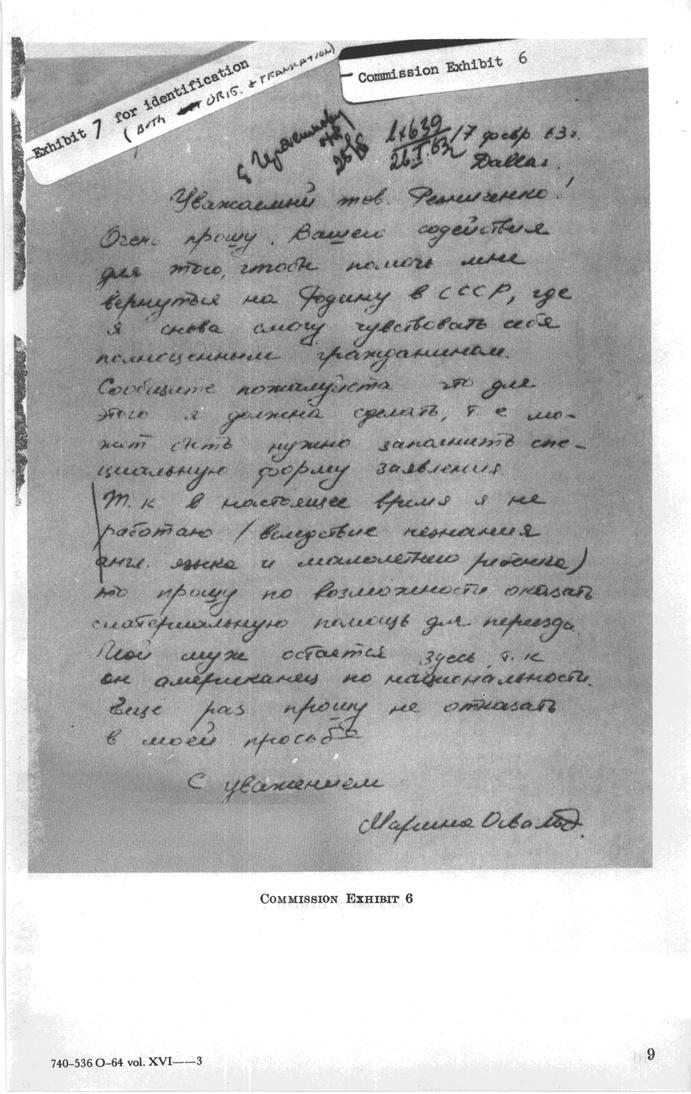 Exhibit 7 for identification
(BOTH ORIG. & TRANSLATION)
Commission Exhibit 6
17 февр 63г.
Dallas.
Уважаемый тов. Резниченко!
Очень прошу Вашего содействия
для того, чтобы помочь мне
вернуться на Родину в СССР, где
я снова смогу чувствовать себя
полноценным гражданином.
Сообщите пожалуйста что для
этого я должна сделать, т.е мо-
жет быть нужно заполнить спе-
циальную форму заявления
Т.к в настоящее время я не
работаю (вследствие незнания
англ. языка и малолетнего ребенка)
то прошу по возможности оказать
материальную помощь для переезда.
Мой муж остается здесь, т.к
он американец по национальности.
Еще раз прошу не отказать
в моей просьбе
С уважением
Марина Освальд.
COMMISSION EXHIBIT 6
740-536 O-64 vol. XVI——3
9